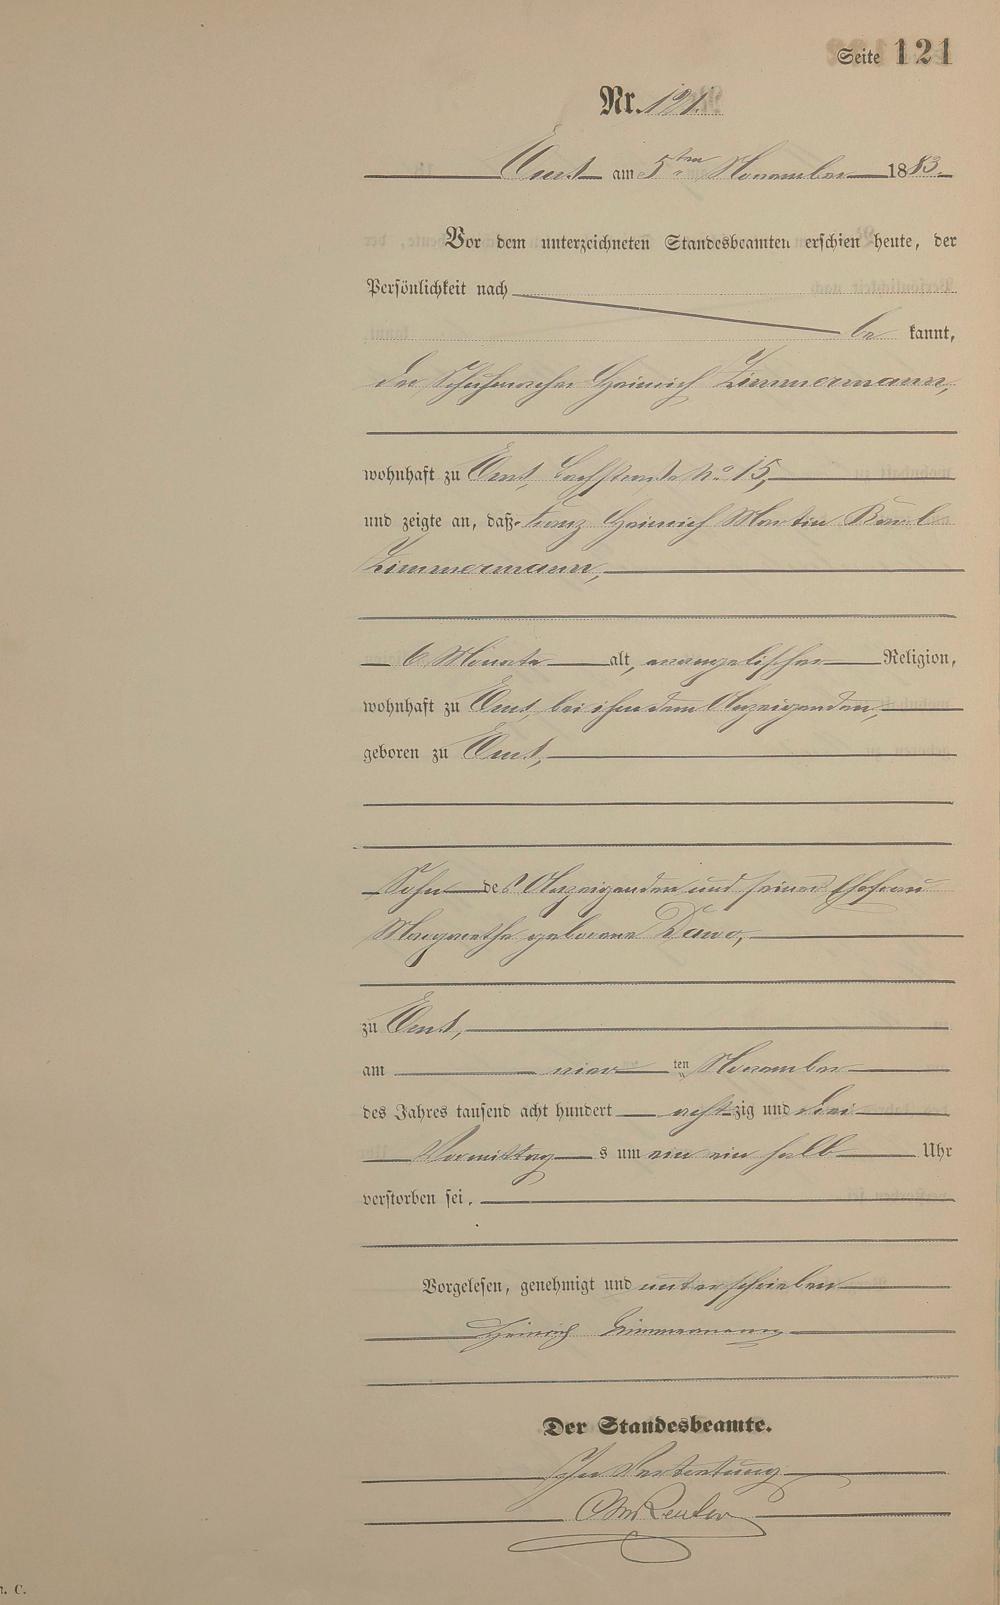 Seite 121
Nr. 121.
Ems am 5ten November 1883.
Vor dem unterzeichneten Standesbeamten erschien heute, der
Persönlichkeit nach
be kannt,
der Schuhmacher Heinrich Zimmermann,
wohnhaft zu Ems, No 15,
und zeigte an, daß Franz Heinrich Martin Carl
Zimmermann,
6 Monate alt, evangelischer Religion,
wohnhaft zu Ems, bei ihm dem Anzeigenden,
geboren zu Ems,
Sohn des Anzeigenden und seiner Ehefrau
Margarethe geborene
zu Ems,
am vier ten November
des Jahres tausend acht hundert achtzig und drei
Vormittag s um ein ein halb Uhr
verstorben sei.
Vorgelesen, genehmigt und unterschrieben
Heinrich Zimmermann
Der Standesbeamte.
In Vertretung
n. C.